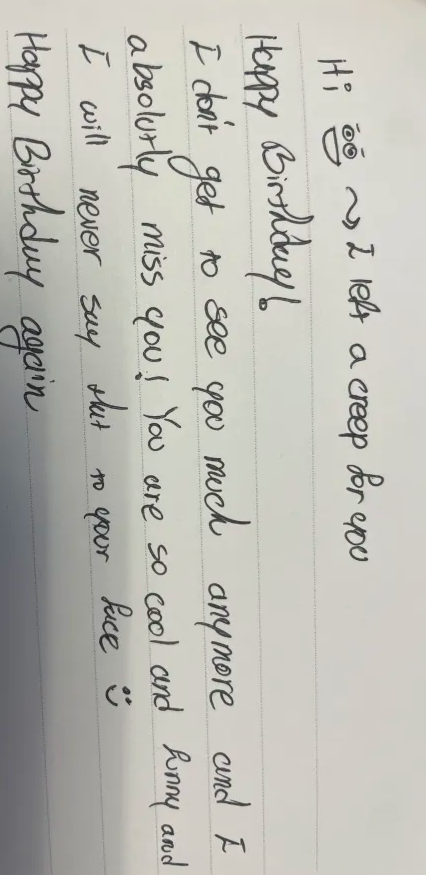 Hi ~> I left a creep for you
Happy Birthday!
I don't get to see you much anymore and I
absolutly miss you! You are so cool and funny and
I will never say that to your face :)
Happy Birthday again